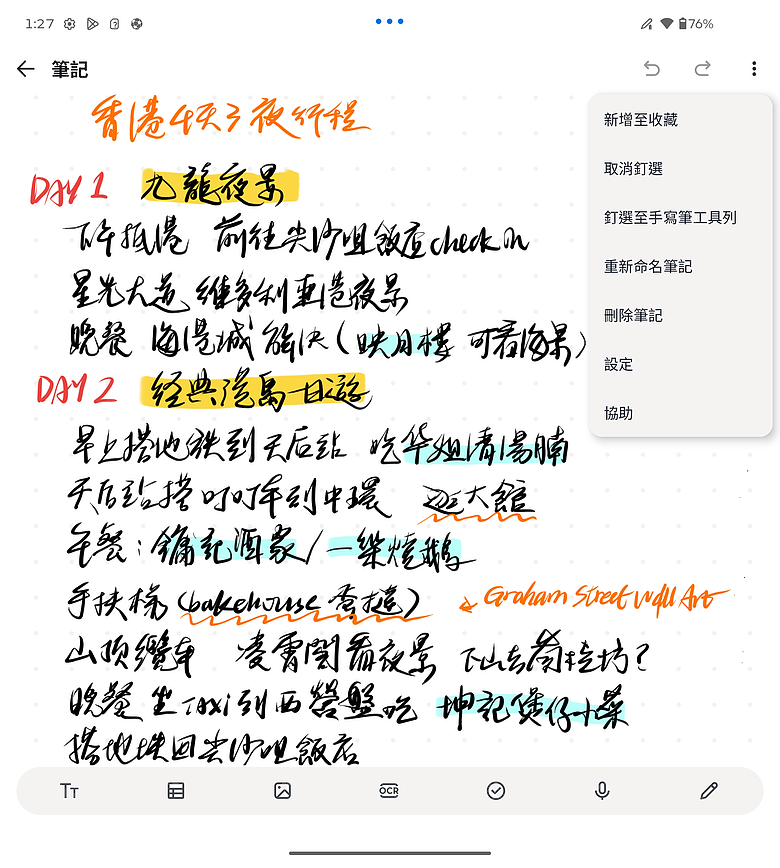 1:27
76%
筆記
新增至收藏
取消釘選
釘選至手寫筆工具列
重新命名筆記
刪除筆記
設定
協助
香港4天3夜行程
DAY 1 九龍夜景
下午抵港 前往尖沙咀飯店check in
星光大道 維多利亞港夜景
晚餐 海港城解決(映月樓 可看海景)
DAY 2 经典港島一日遊
早上搭地鉄到天后站 吃华姐清湯腩
天后站搭叮叮車到中環 逛大館
午餐:鏞記酒家/一樂燒鵝
手扶梯 (bakehouse 蛋撻) Graham Street Wall Art
山顶纜車 凌霄閣看夜景 下山去蘭桂坊?
晚餐 坐taxi到西營盤吃 坤記煲仔小菜
搭地鉄回尖沙咀飯店
Tт
OCR